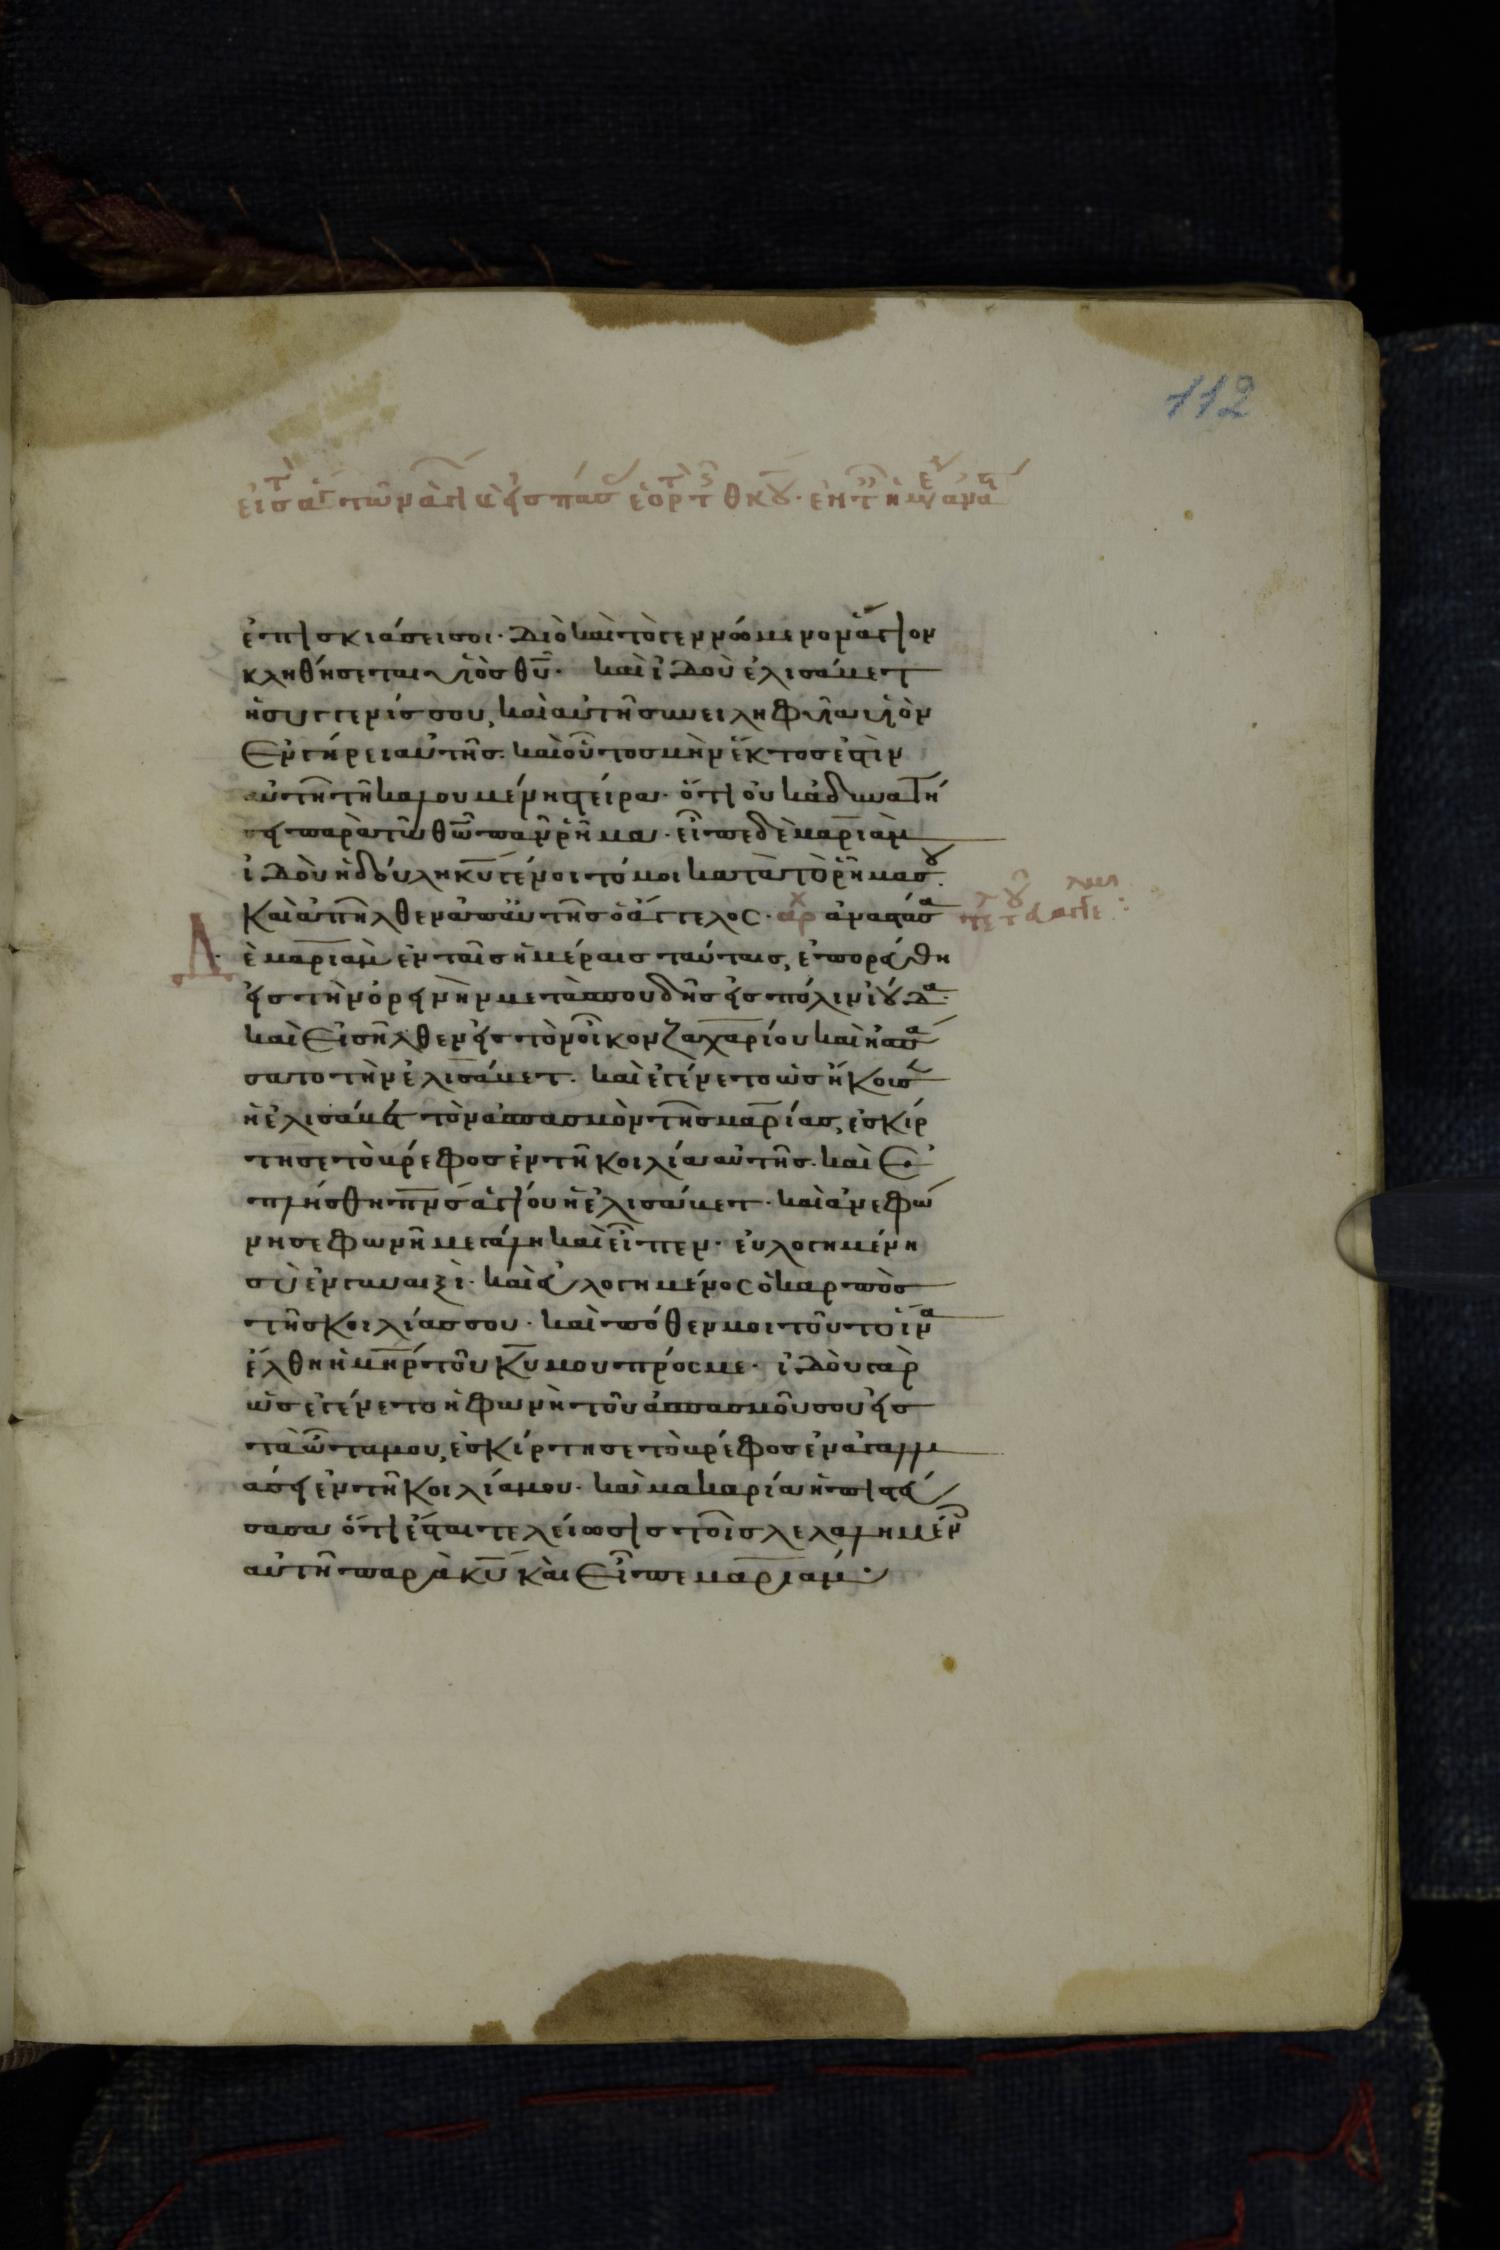 112
ἐπισκιάσει σοι· διὸ καὶ τὸ γεννώμενον ἅγιον
κληθήσεται υἱὸς θῦ· καὶ ἰδοὺ ἐλισάβετ
ἡ συγγενίς σου, καὶ αὐτὴ συνειληφυῖα υἱὸν
ἐν γήρει αὐτῆς· καὶ οὗτος μὴν ἕκτος ἐστὶν
αὐτῇ τῇ καλουμένῃ στείρα· ὅτι οὐκ ἀδυνατή
σει παρὰ τῶ θῶ πᾶν ῥῆμα· εἶπε δὲ μαριὰμ
ἰδοὺ ἡ δούλη κῦ γένοιτό μοι κατὰ τὸ ῥῆμα σου·
Καὶ ἀπῆλθεν ἀπ' αὐτῆς ὁ ἄγγελος· ἀρχ ἀναστάσα
δ ὲ μαριὰμ ἐν ταῖς ἡμέραις ταύταις, ἐπορεύθη
εἰς τὴν ὀρεινὴν μετὰ σπουδῆς εἰς πόλιν ἰούδα·
καὶ εἰσῆλθεν εἰς τὸν οἶκον ζαχαρίου καὶ ἠσπά
σατο τὴν ἐλισάβετ· καὶ ἐγένετο ὡς ἤκουσεν
ἡ ἐλισάβετ τὸν ἀσπασμὸν τῆς μαρίας, ἐσκίρ
τησε τὸ βρέφος ἐν τῇ κοιλία αὐτῆς· καὶ ἐ
πλήσθη πνς ἁγίου ἡ ἐλισάβετ· καὶ ἀνεφώ
νησε φωνῇ μεγάλη καὶ εἶπεν· εὐλογημένη
σὺ ἐν γυναιξὶ· καὶ εὐλογημένος ὁ καρπὸς
τῆς κοιλίας σου· καὶ πόθεν μοι τοῦτο ἵνα
ἔλθη ἡ μηρ τοῦ κῦ μου πρός με· ἰδοὺ γὰρ
ὡς ἐγένετο ἡ φωνὴ τοῦ ἀσπασμοῦ σου εἰς
τὰ ὦτα μου, ἐσκίρτησε τὸ βρέφος ἐν ἀγαλλι
άσει ἐν τῇ κοιλία μου· καὶ μακαρία ἡ πιστεύ
σασα ὅτι ἔσται τελείωσις τοῖς λελαλημένοις
αὐτῇ παρὰ κῦ καὶ εἶπε μαριάμ·